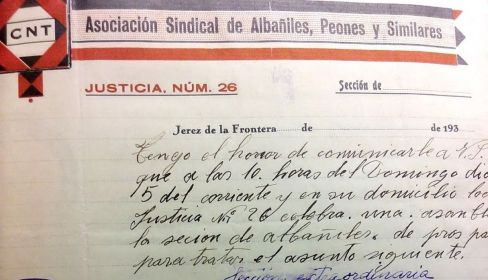 CNT
Asociación Sindical de Albañiles, Peones y Similares
JUSTICIA, NÚM. 26
Sección de
Jerez de la Frontera de de 193
Tengo el honor de comunicarle a V.
que a las 10 horas del Domingo dia
5 del corriente y en su domicilio
Justicia Nº 26 celebra una
la secion de albañiles, de
para tratar el asunto siguiente.
extraordinaria